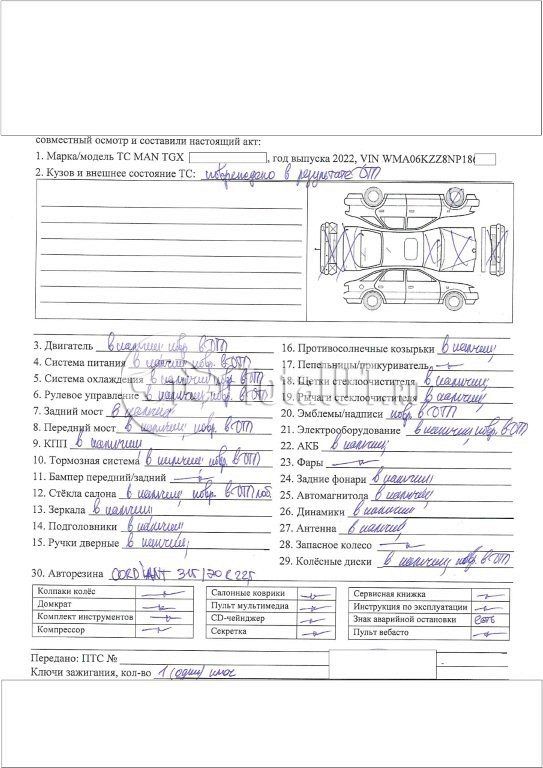 совместный осмотр и составили настоящий акт:
1. Марка/модель ТС MAN TGX , год выпуска 2022, VIN WMA06KZZ8NP186
2. Кузов и внешнее состояние ТС: повреждено в результате ДТП
3. Двигатель в наличии, повр. в ДТП
4. Система питания в наличии, повр. в ДТП
5. Система охлаждения в наличии, повр. в ДТП
6. Рулевое управление в наличии, повр. в ДТП
7. Задний мост в наличии
8. Передний мост в наличии, повр. в ДТП
9. КПП в наличии
10. Тормозная система в наличии, повр. в ДТП
11. Бампер передний/задний —
12. Стёкла салона в наличии, повр. в ДТП лоб.
13. Зеркала в наличии
14. Подголовники в наличии
15. Ручки дверные в наличии
16. Противосолнечные козырьки в наличии
17. Пепельницы/прикуриватель —
18. Щетки стеклоочистителя в наличии
19. Рычаги стеклоочистителя в наличии
20. Эмблемы/надписи повр. в ДТП
21. Электрооборудование в наличии, повр. в ДТП
22. АКБ в наличии
23. Фары —
24. Задние фонари в наличии
25. Автомагнитола в наличии
26. Динамики в наличии
27. Антенна в наличии
28. Запасное колесо —
29. Колёсные диски в наличии, повр. в ДТП
30. Авторезина CORDIANT 315/70 R 22,5
Колпаки колёс —
Домкрат —
Комплект инструментов —
Компрессор —
Салонные коврики —
Пульт мультимедиа —
CD-чейнджер —
Секретка —
Сервисная книжка —
Инструкция по эксплуатации —
Знак аварийной остановки есть
Пульт вебасто —
Передано: ПТС №
Ключи зажигания, кол-во 1 (один) ключ